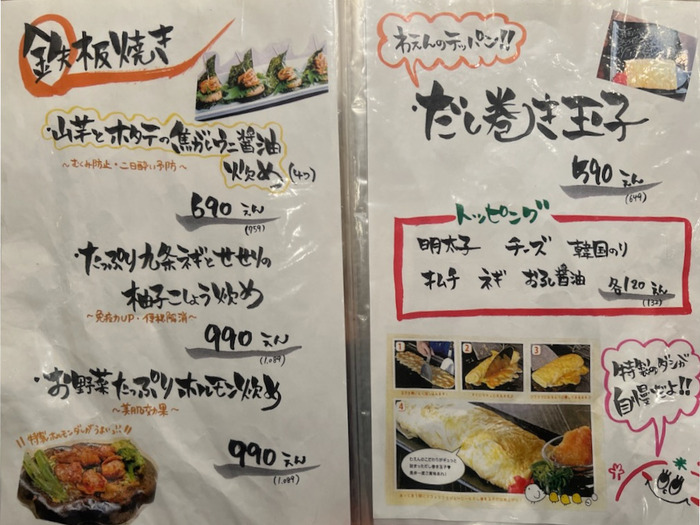 鉄板焼き
・山芋とホタテの焦がしウニ醤油
炒め(4つ)
～むくみ防止・二日酔い予防～
690えん
(759)
・たっぷり九条ネギとせせりの
柚子こしょう炒め
～免疫力UP・便秘解消～
990えん
(1,089)
・お野菜たっぷりホルモン炒め
～美肌効果～
特製ホルモンダレがうまい!!
990えん
(1,089)
わえんのテッパン!!
・だし巻き玉子
590えん
(649)
トッピング
明太子 チーズ 韓国のり
キムチ ネギ おろし醤油 各120えん
(132)
1
2
3
4
わえんのこだわりがギュッと
詰まっただし巻き玉子
特製のダシが
自慢だよ!!